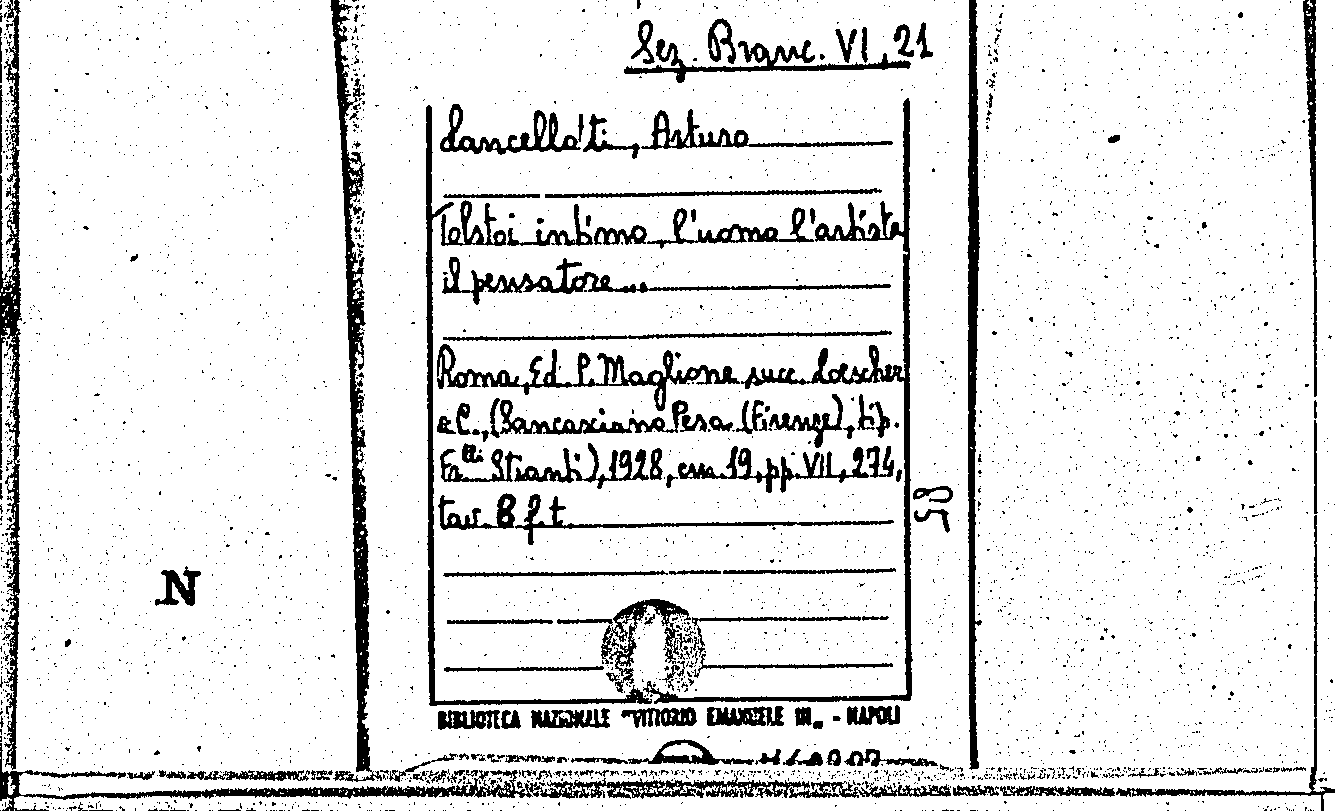 Sez. Branc. VI, 21
Lancellotti, Arturo
Tolstoi intimo, l'uomo l'artista
il pensatore...
Roma, Ed. P. Maglione succ. Loescher
e C., (Sancasciano Pesa (Firenze), tip.
Fr.lli Stianti), 1928, cm. 19, pp. VII, 274,
tav. 8 f. t.
58
N
BIBLIOTECA NAZIONALE "VITTORIO EMANUELE III„ - NAPOLI